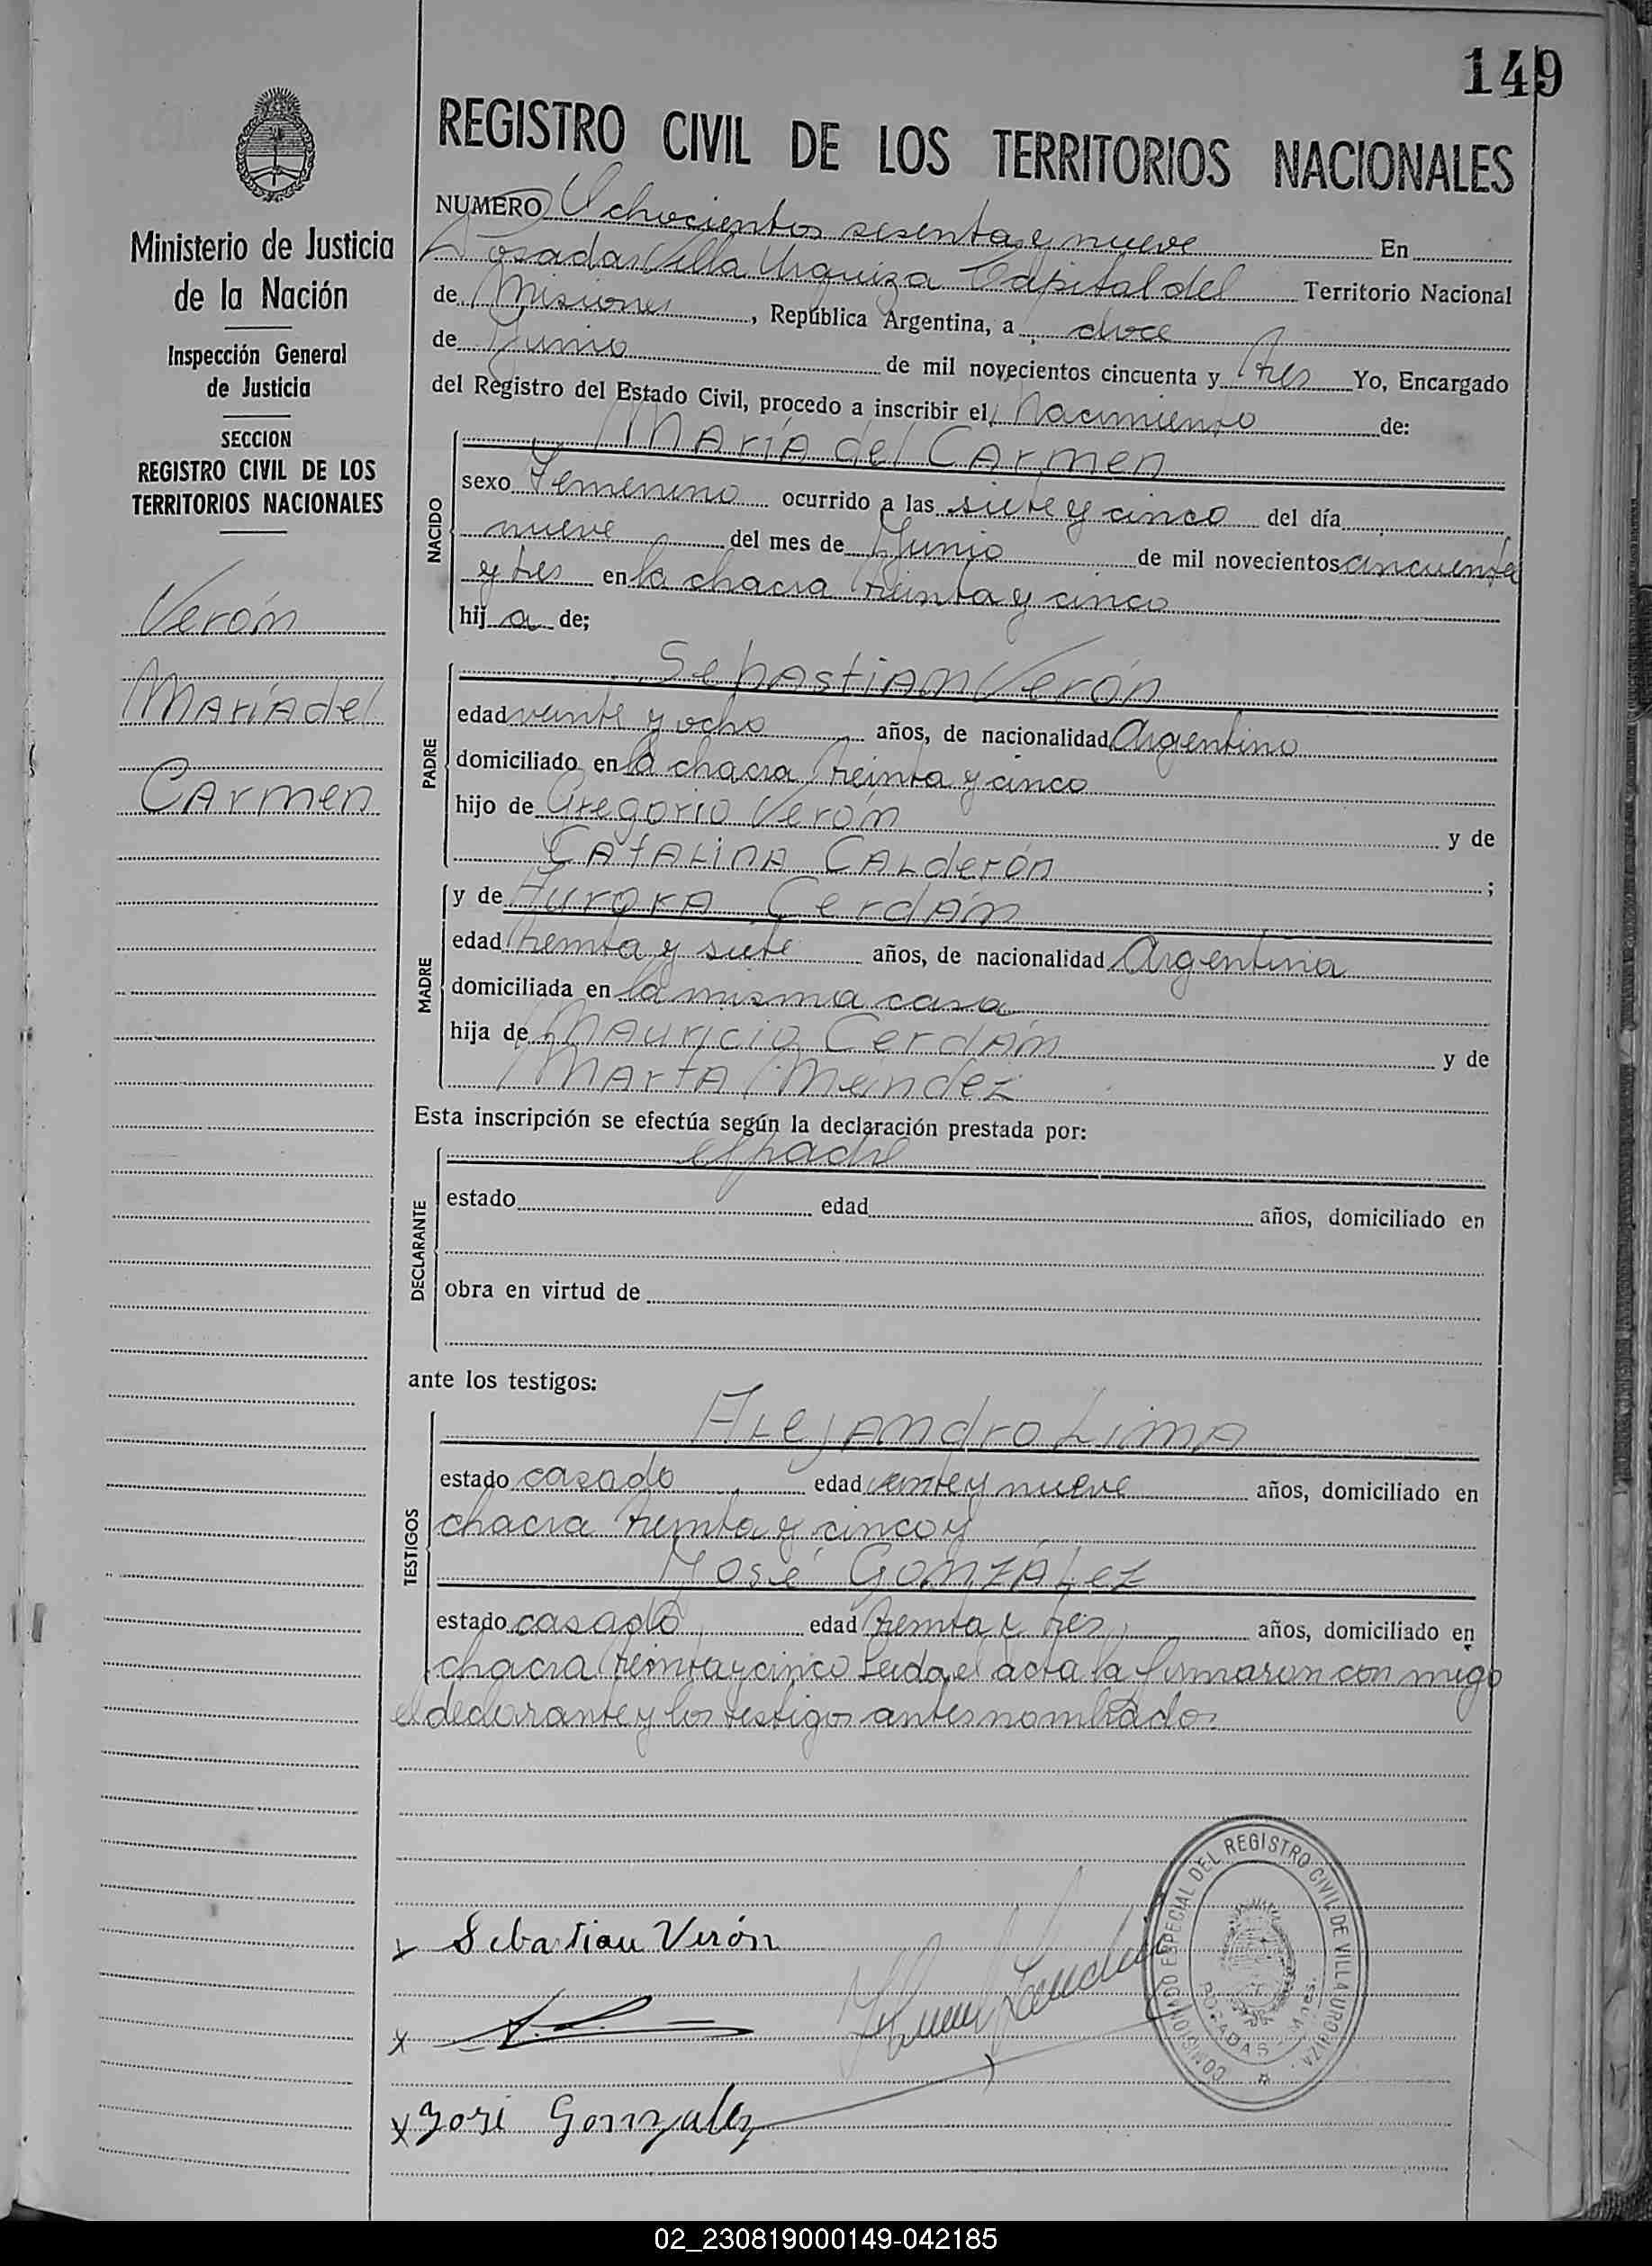 149
REGISTRO CIVIL DE LOS TERRITORIOS NACIONALES
Ministerio de Justicia
de la Nación
Inspección General
de Justicia
SECCION
REGISTRO CIVIL DE LOS
TERRITORIOS NACIONALES
Verón
María del
Carmen
NUMERO Ochocientos sesenta y nueve En
Posadas Villa Urquiza Capital del Territorio Nacional
de Misiones, República Argentina, a doce
de Junio de mil novecientos cincuenta y tres Yo, Encargado
del Registro del Estado Civil, procedo a inscribir el Nacimiento de:
María del Carmen
NACIDO
sexo Femenino ocurrido a las siete y cinco del día
nueve del mes de Junio de mil novecientos cincuenta
y tres en la chacra treinta y cinco
hij a de;
Sebastian Verón
PADRE
edad veinte y ocho años, de nacionalidad Argentino
domiciliado en la chacra treinta y cinco
hijo de Gregorio Verón y de
Catalina Calderón ;
y de Aurora Cerdán
MADRE
edad treinta y siete años, de nacionalidad Argentina
domiciliada en la misma casa
hija de Mauricio Cerdán y de
Marta Meindez
Esta inscripción se efectúa según la declaración prestada por:
el padre
DECLARANTE
estado edad años, domiciliado en
obra en virtud de
ante los testigos:
Alejandro Lima
TESTIGOS
estado casado edad veinte y nueve años, domiciliado en
chacra treinta y cinco y
José González
estado casado edad treinta y tres años, domiciliado en
chacra treinta y cinco Leida el acta la firmaron con migo
el declarante y los testigos antes nombrados
Sebastian Verón
José Gonzalez
COMISIONADO ESPECIAL DEL REGISTRO CIVIL DE VILLA URQUIZA
POSADAS - MNES.
02_230819000149-042185